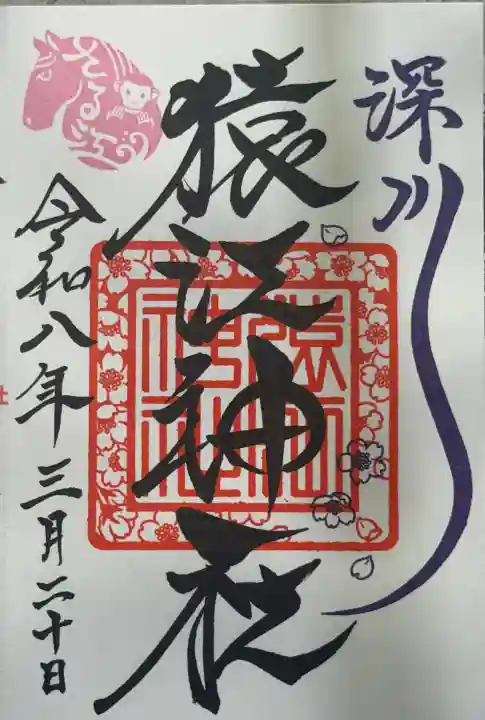 深川
猿江神社
猿江神社
さる江の
令和八年三月二十日
社